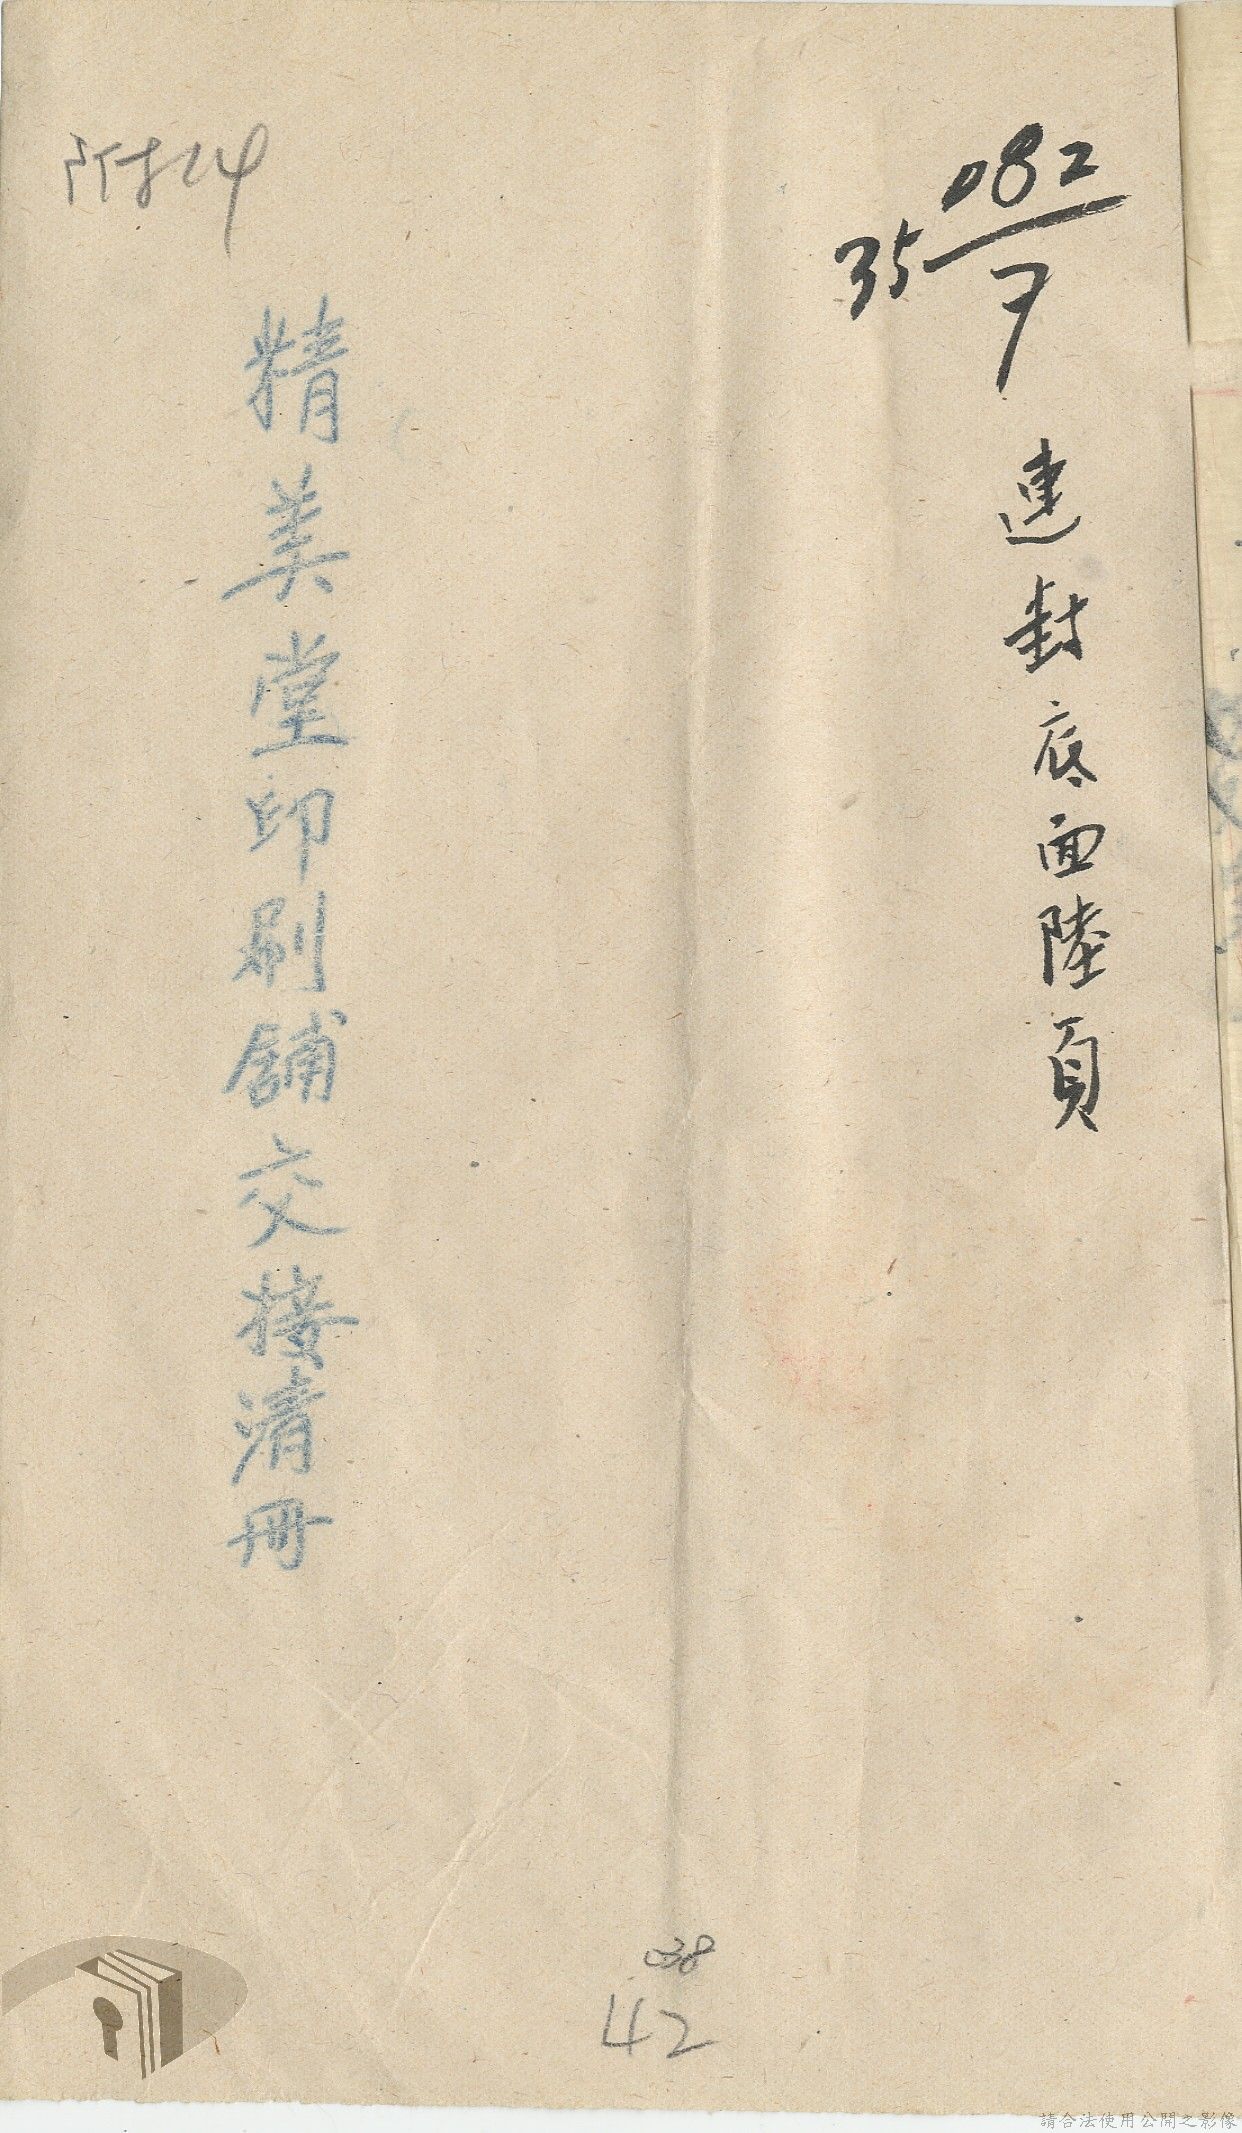 082
35
7
連封底面陸頁
附24
精美堂印刷舖交接清冊
038
42
請合法使用公開之影像